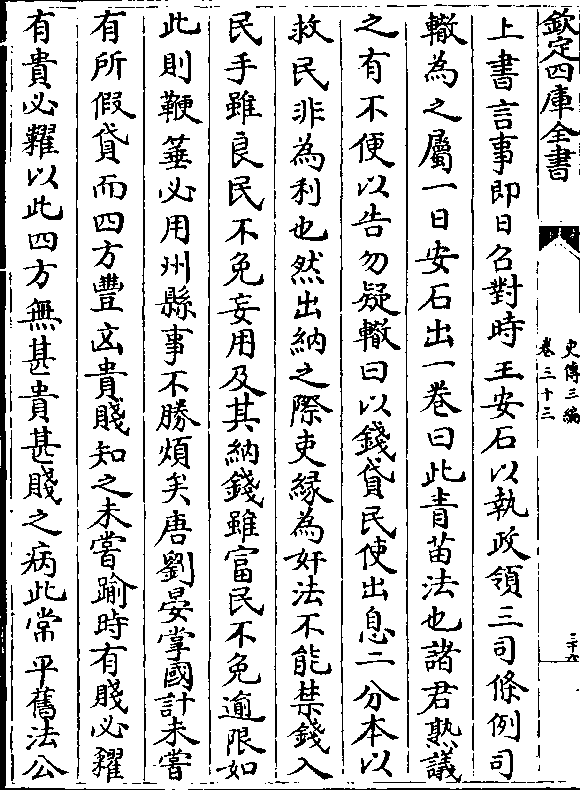 欽定四庫全書
史傳三編
卷三十三
二十六
上書言事即日召對時王安石以執政領三司條例司
轍為之屬一日安石出一卷曰此青苗法也諸君熟議
之有不便以告勿疑轍曰以錢貸民使出息二分本以
救民非為利也然出納之際吏緣為奸法不能禁錢入
民手雖良民不免妄用及其納錢雖富民不免逾限如
此則鞭箠必用州縣事不勝煩矣唐劉晏掌國計未嘗
有所假貸而四方豐凶貴賤知之未嘗踰時有賤必糴
有貴必糶以此四方無甚貴甚賤之病此常平舊法公